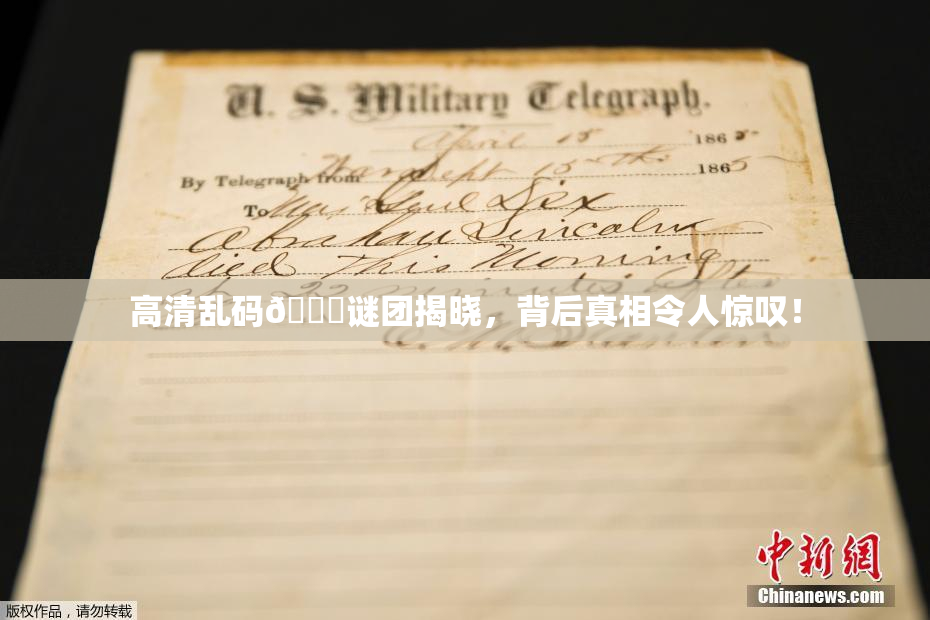 U. S. Military Telegraph.
April 15 1865
By Telegraph from War Dept 15th 1865
To Maj Genl Dix
Abraham Lincoln
died This Morning
at 22 minutes after
高清乱码ð谜团揭晓，背后真相令人惊叹！
E. M. Stanton
中新网
Chinanews.com
版权作品，请勿转载